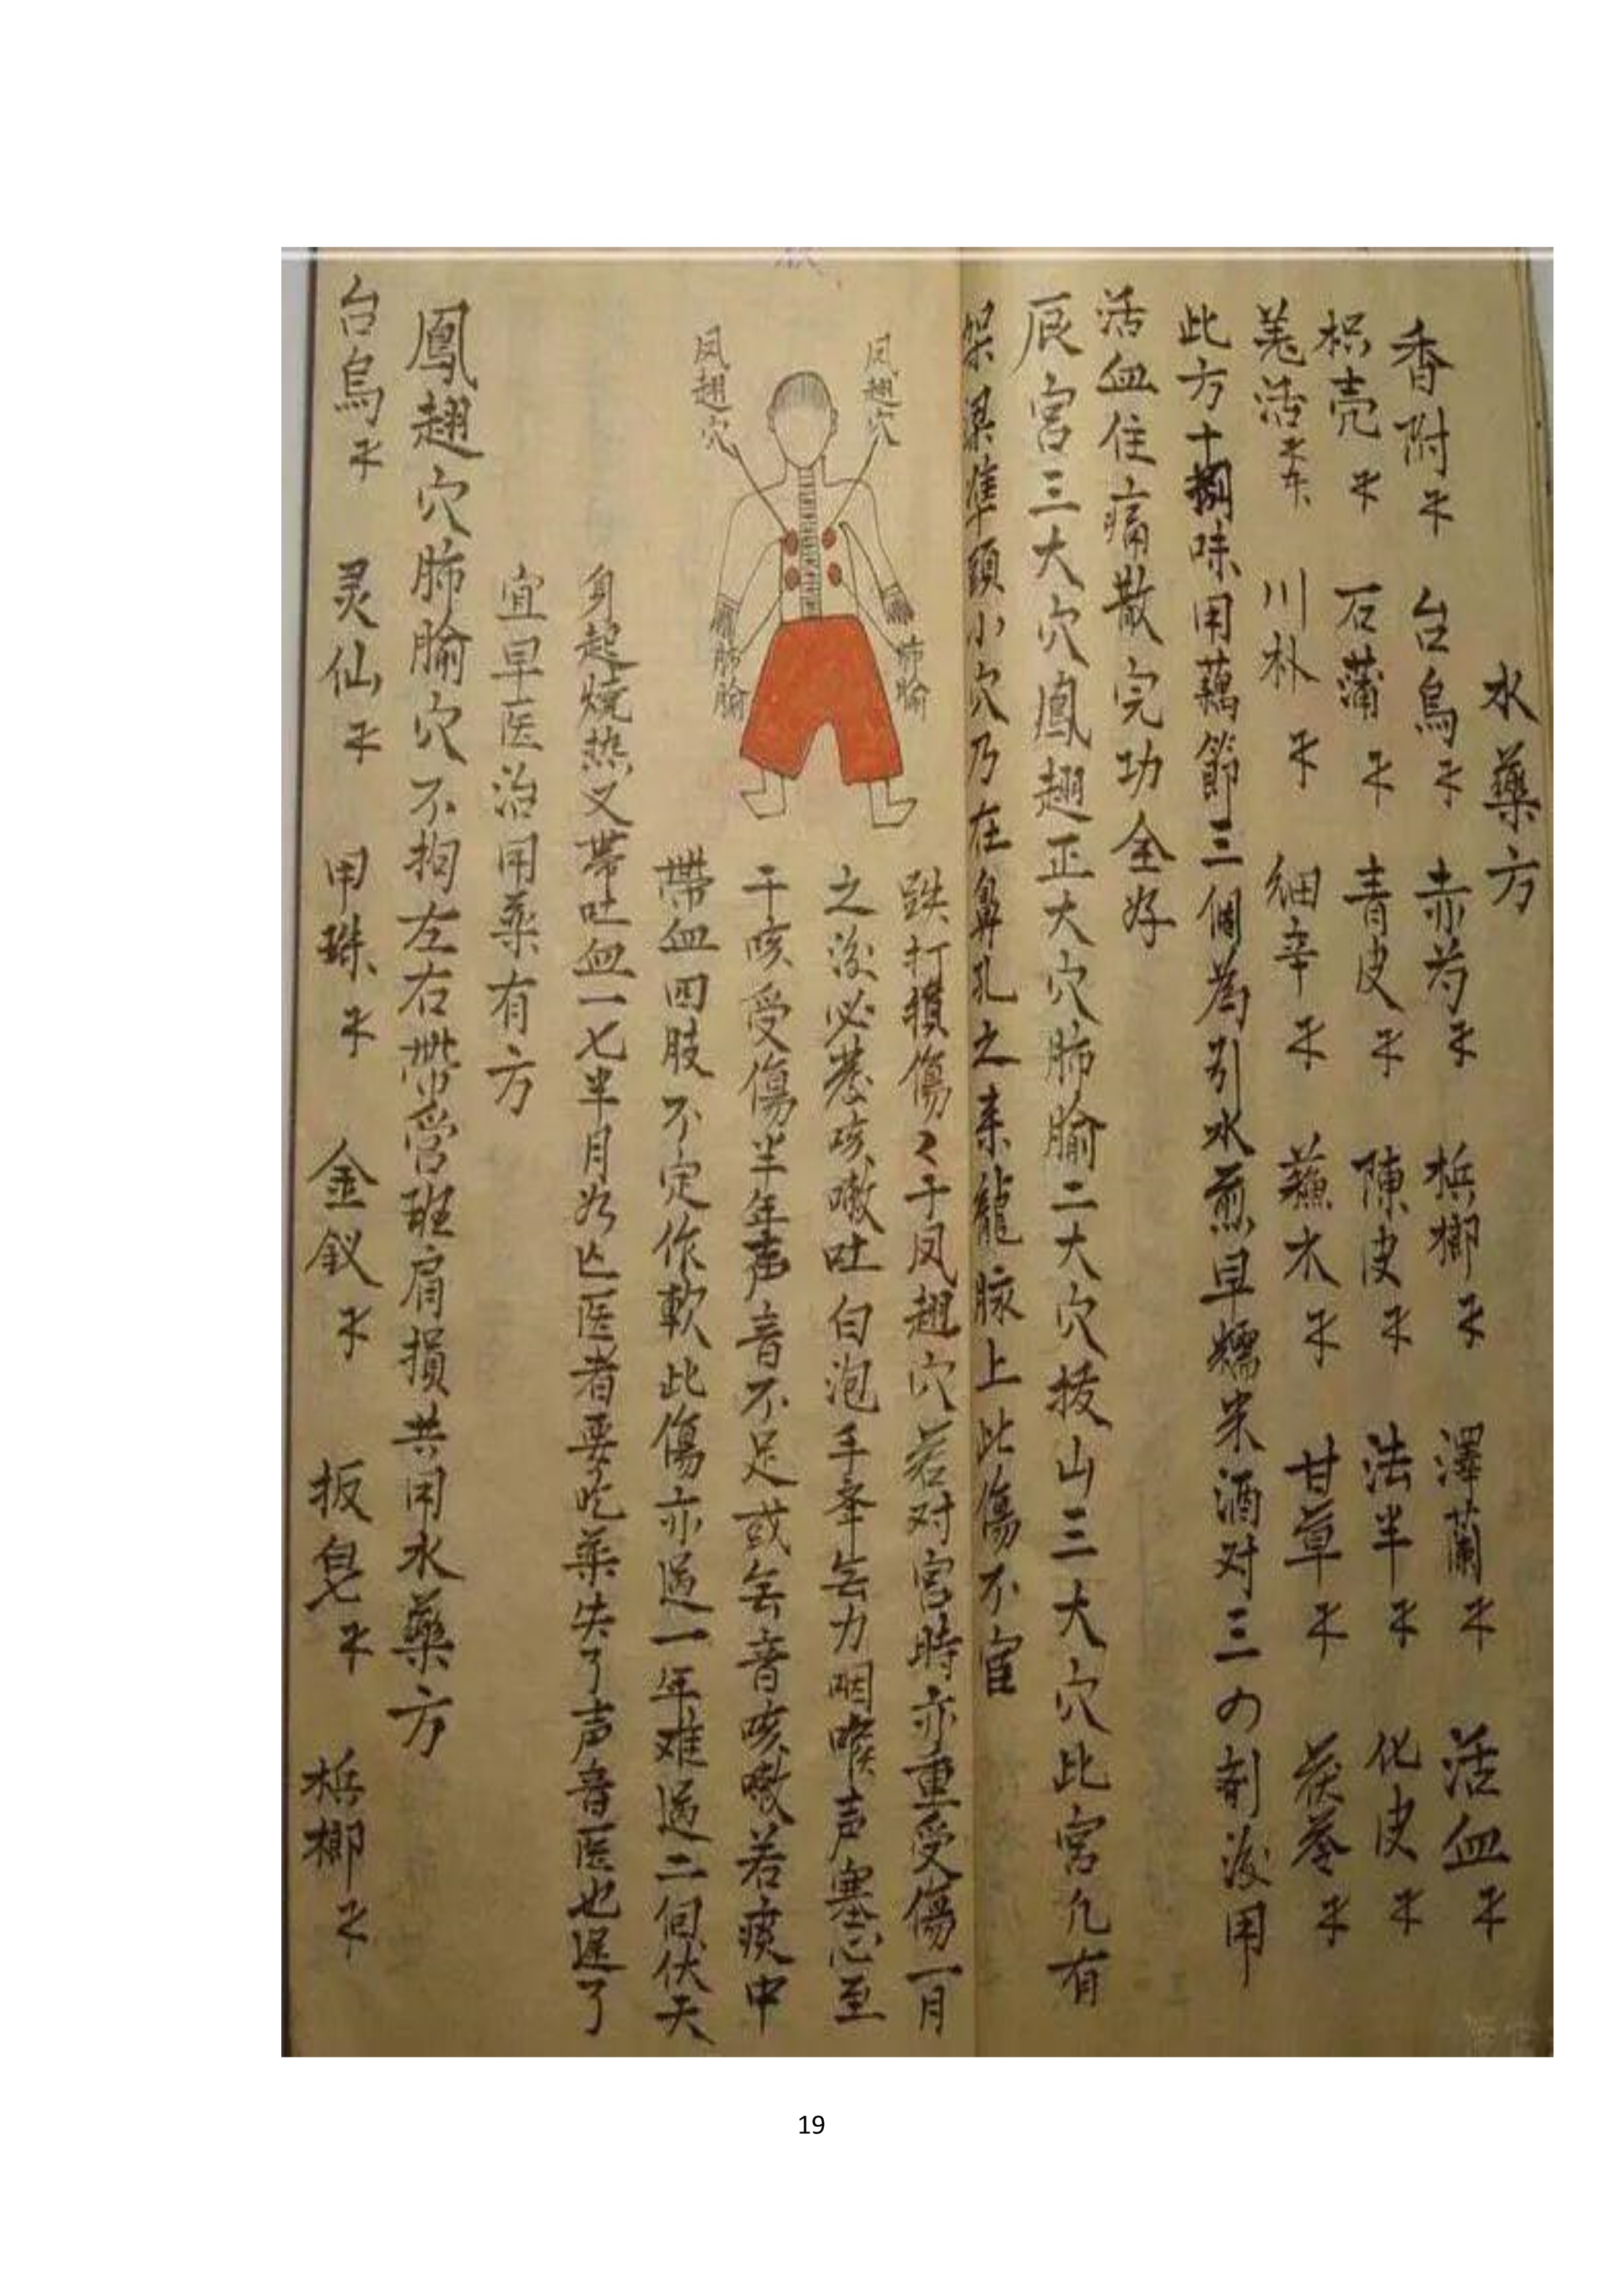 水藥方
香附 台烏 赤芍 梹榔 澤蘭 活血
枳壳 石蒲 青皮 陳皮 法半 化皮
羌活 川朴 細辛 蘇木 甘草 茯苓
此方十捌味用藕節三個為引水煎早糯米酒对三の剤後用
活血住痛散完功全好
辰宮三大穴鳳翅正大穴肺腧二大穴拔山三大穴此宮九有
梁準頭小穴乃在鼻孔之来龍脉上此傷不宦
凤翅穴
凤翅穴
肺腧
肺腧
跌打損傷々于凤翅穴若对宮時亦重受傷一月
之後必卷咳嗽吐白泡手夅缶力咽喉声塞心至
干咳受傷半年声音不足或缶音咳嗽若痰中
帶血四肢不定作軟此傷亦過一年难過二個伏天
身起燒热又帶吐血一七半月為医者要吃薬失了声音医也遲了
宜早医治用薬有方
鳳翅穴肺腧穴不拘左右帶营班肩損共用水藥方
台烏 灵仙 甲珠 金釵 扳皂 梹榔
19